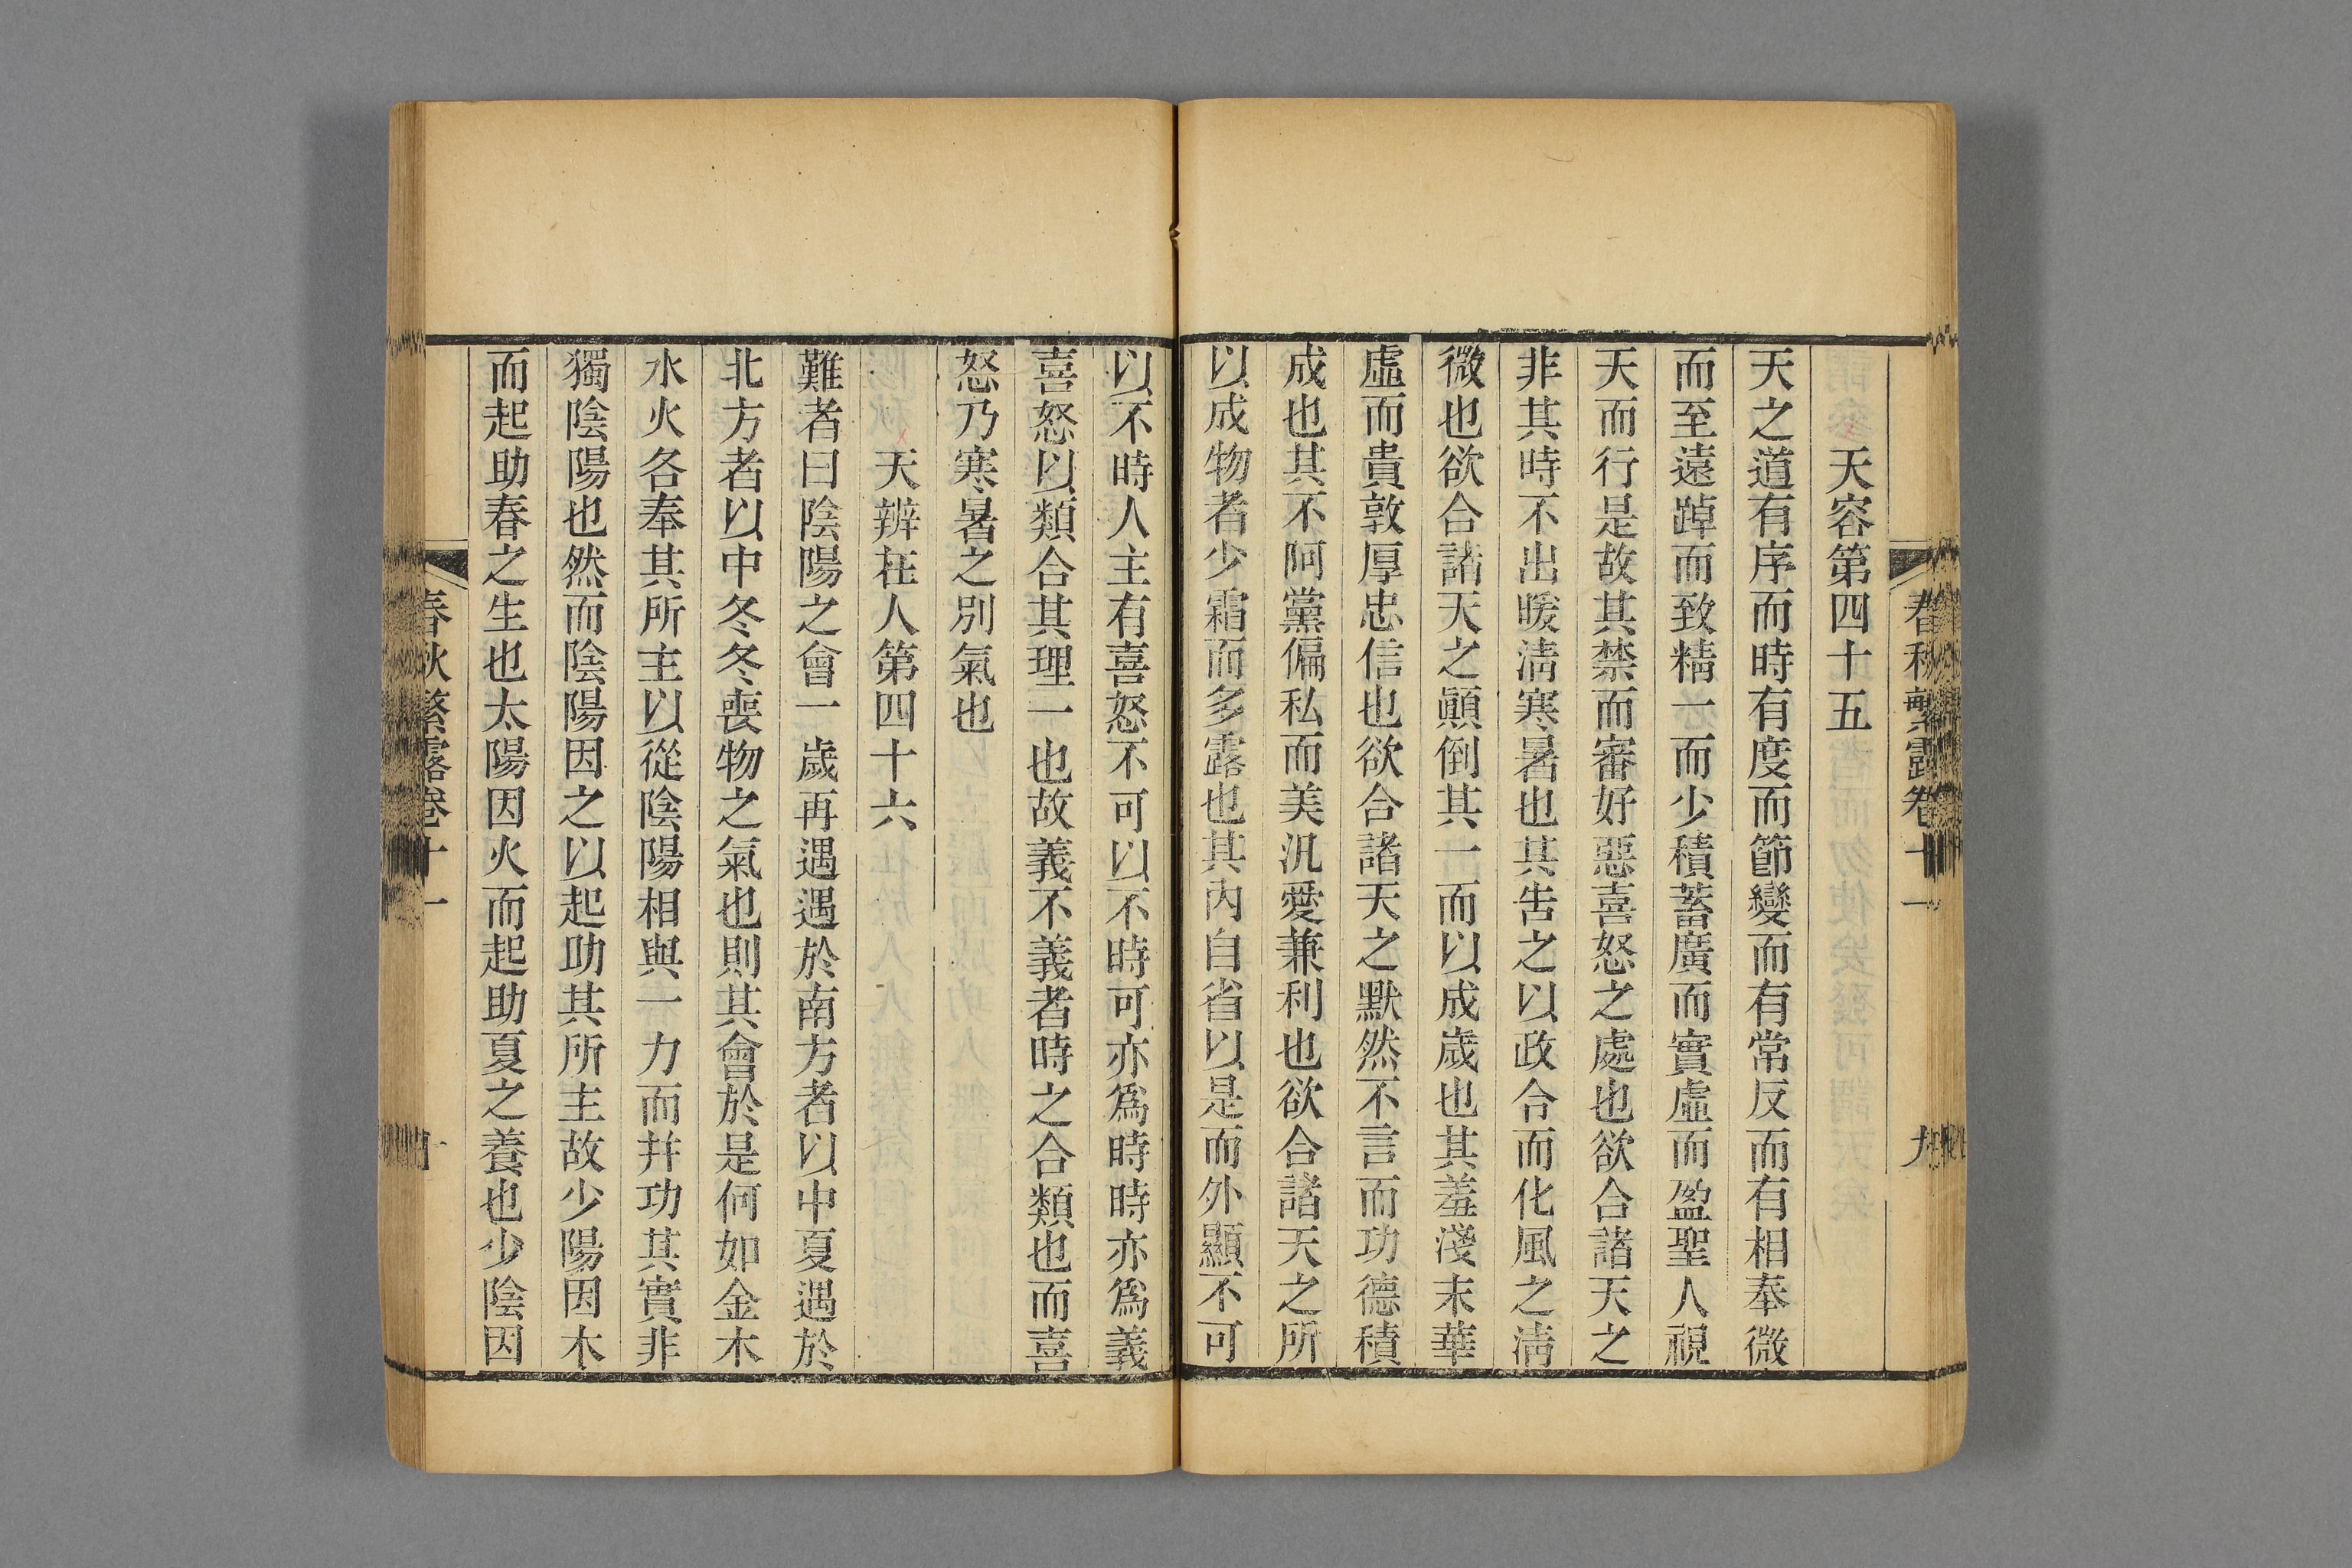 春秋繁露卷十一
九
天容第四十五
天之道有序而時有度而節變而有常反而有相奉微
而至遠踔而致精一而少積蓄廣而實虛而盈聖人視
天而行是故其禁而審好惡喜怒之處也欲合諸天之
非其時不出暖淸寒暑也其告之以政合而化風之淸
微也欲合諸天之顚倒其一而以成歲也其羞淺末華
虛而貴敦厚忠信也欲合諸天之默然不言而功德積
成也其不阿黨偏私而美汎愛兼利也欲合諸天之所
以成物者少霜而多露也其內自省以是而外顯不可
以不時人主有喜怒不可以不時可亦爲時時亦爲義
喜怒以類合其理一也故義不義者時之合類也而喜
怒乃寒暑之別氣也
天辨在人第四十六
難者曰陰陽之會一歲再遇遇於南方者以中夏遇於
北方者以中冬冬喪物之氣也則其會於是何如金木
水火各奉其所主以從陰陽相與一力而幷功其實非
獨陰陽也然而陰陽因之以起助其所主故少陽因木
而起助春之生也太陽因火而起助夏之養也少陰因
春秋繁露卷十一